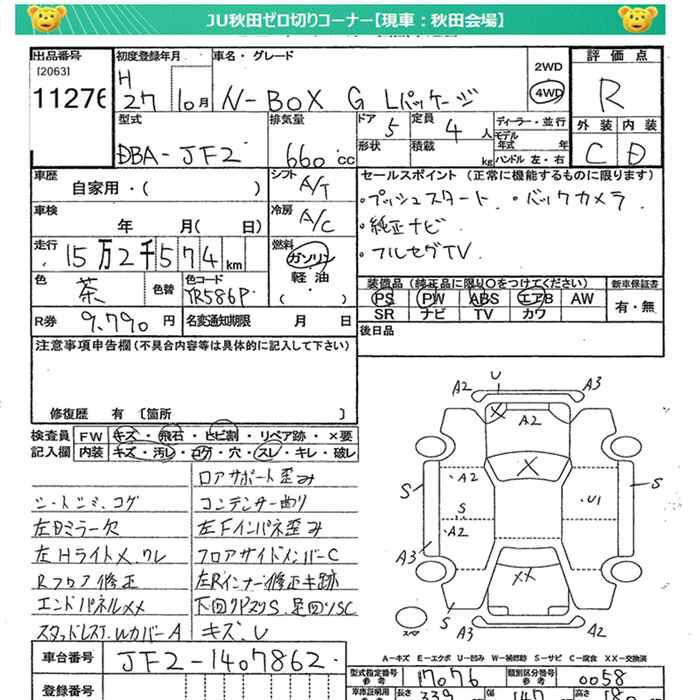 JU秋田ゼロ切りコーナー【現車：秋田会場】
出品番号
[2063]
11276
初度登録年月
H
27 10月
車名・グレード
N-BOX G Lパッケージ
2WD
4WD
評価点
R
外装 内装
C D
型式
DBA-JF2
排気量
660 cc
ドア 5
形状
定員 4 人
積載 kg
ディーラー・並行
モデル年式 年
ハンドル 左・右
車歴
自家用・( )
シフト A/T
セールスポイント (正常に機能するものに限ります)
・プッシュスタート ・バックカメラ
・純正ナビ
・フルセグTV
車検
年 月( 日)
冷房 A/C
走行
15万2千574km
燃料
ガソリン
軽油
( )
色 茶
色替
色コード
YR586P
装備品(純正品に限り○をつけてください)
PS PW ABS エアB AW
SR ナビ TV カワ
新車保証書
有・無
R券 9,790 円
名変通知期限 月 日
後日品
注意事項申告欄(不具合内容等は具体的に記入して下さい)
修復歴 有 〔箇所 〕
検査員記入欄
FW キズ・飛石・ヒビ割・リペア跡・×要
内装 キズ・汚レ・コゲ・穴・スレ・キレ・破レ
ロアサポート歪み
シートシミ、コゲ
コンデンサー曲り
左Dミラー欠
左Fインパネ歪み
左Hライトメ、ワレ
フロアサイドメンバーC
Rフロア修正
左Rインナー修正キ跡
エンドパネルXX
下回リアスリS、足回リSC
スタッドレス1、WカバーA
キズ、U
U
A2
A3
X
A2
X
A2
S
A2
S
U1
S
A3
XX
S
A3
A2
スペア
A-キズ E-エクボ U-凹み W-補修跡 S-サビ C-腐食 XX-交換済
車台番号
JF2-1407862
登録番号
型式指定番号 参考
17076
類別区分番号 参考
0058
車庫証明用
長さ 339
幅 147
高さ 180